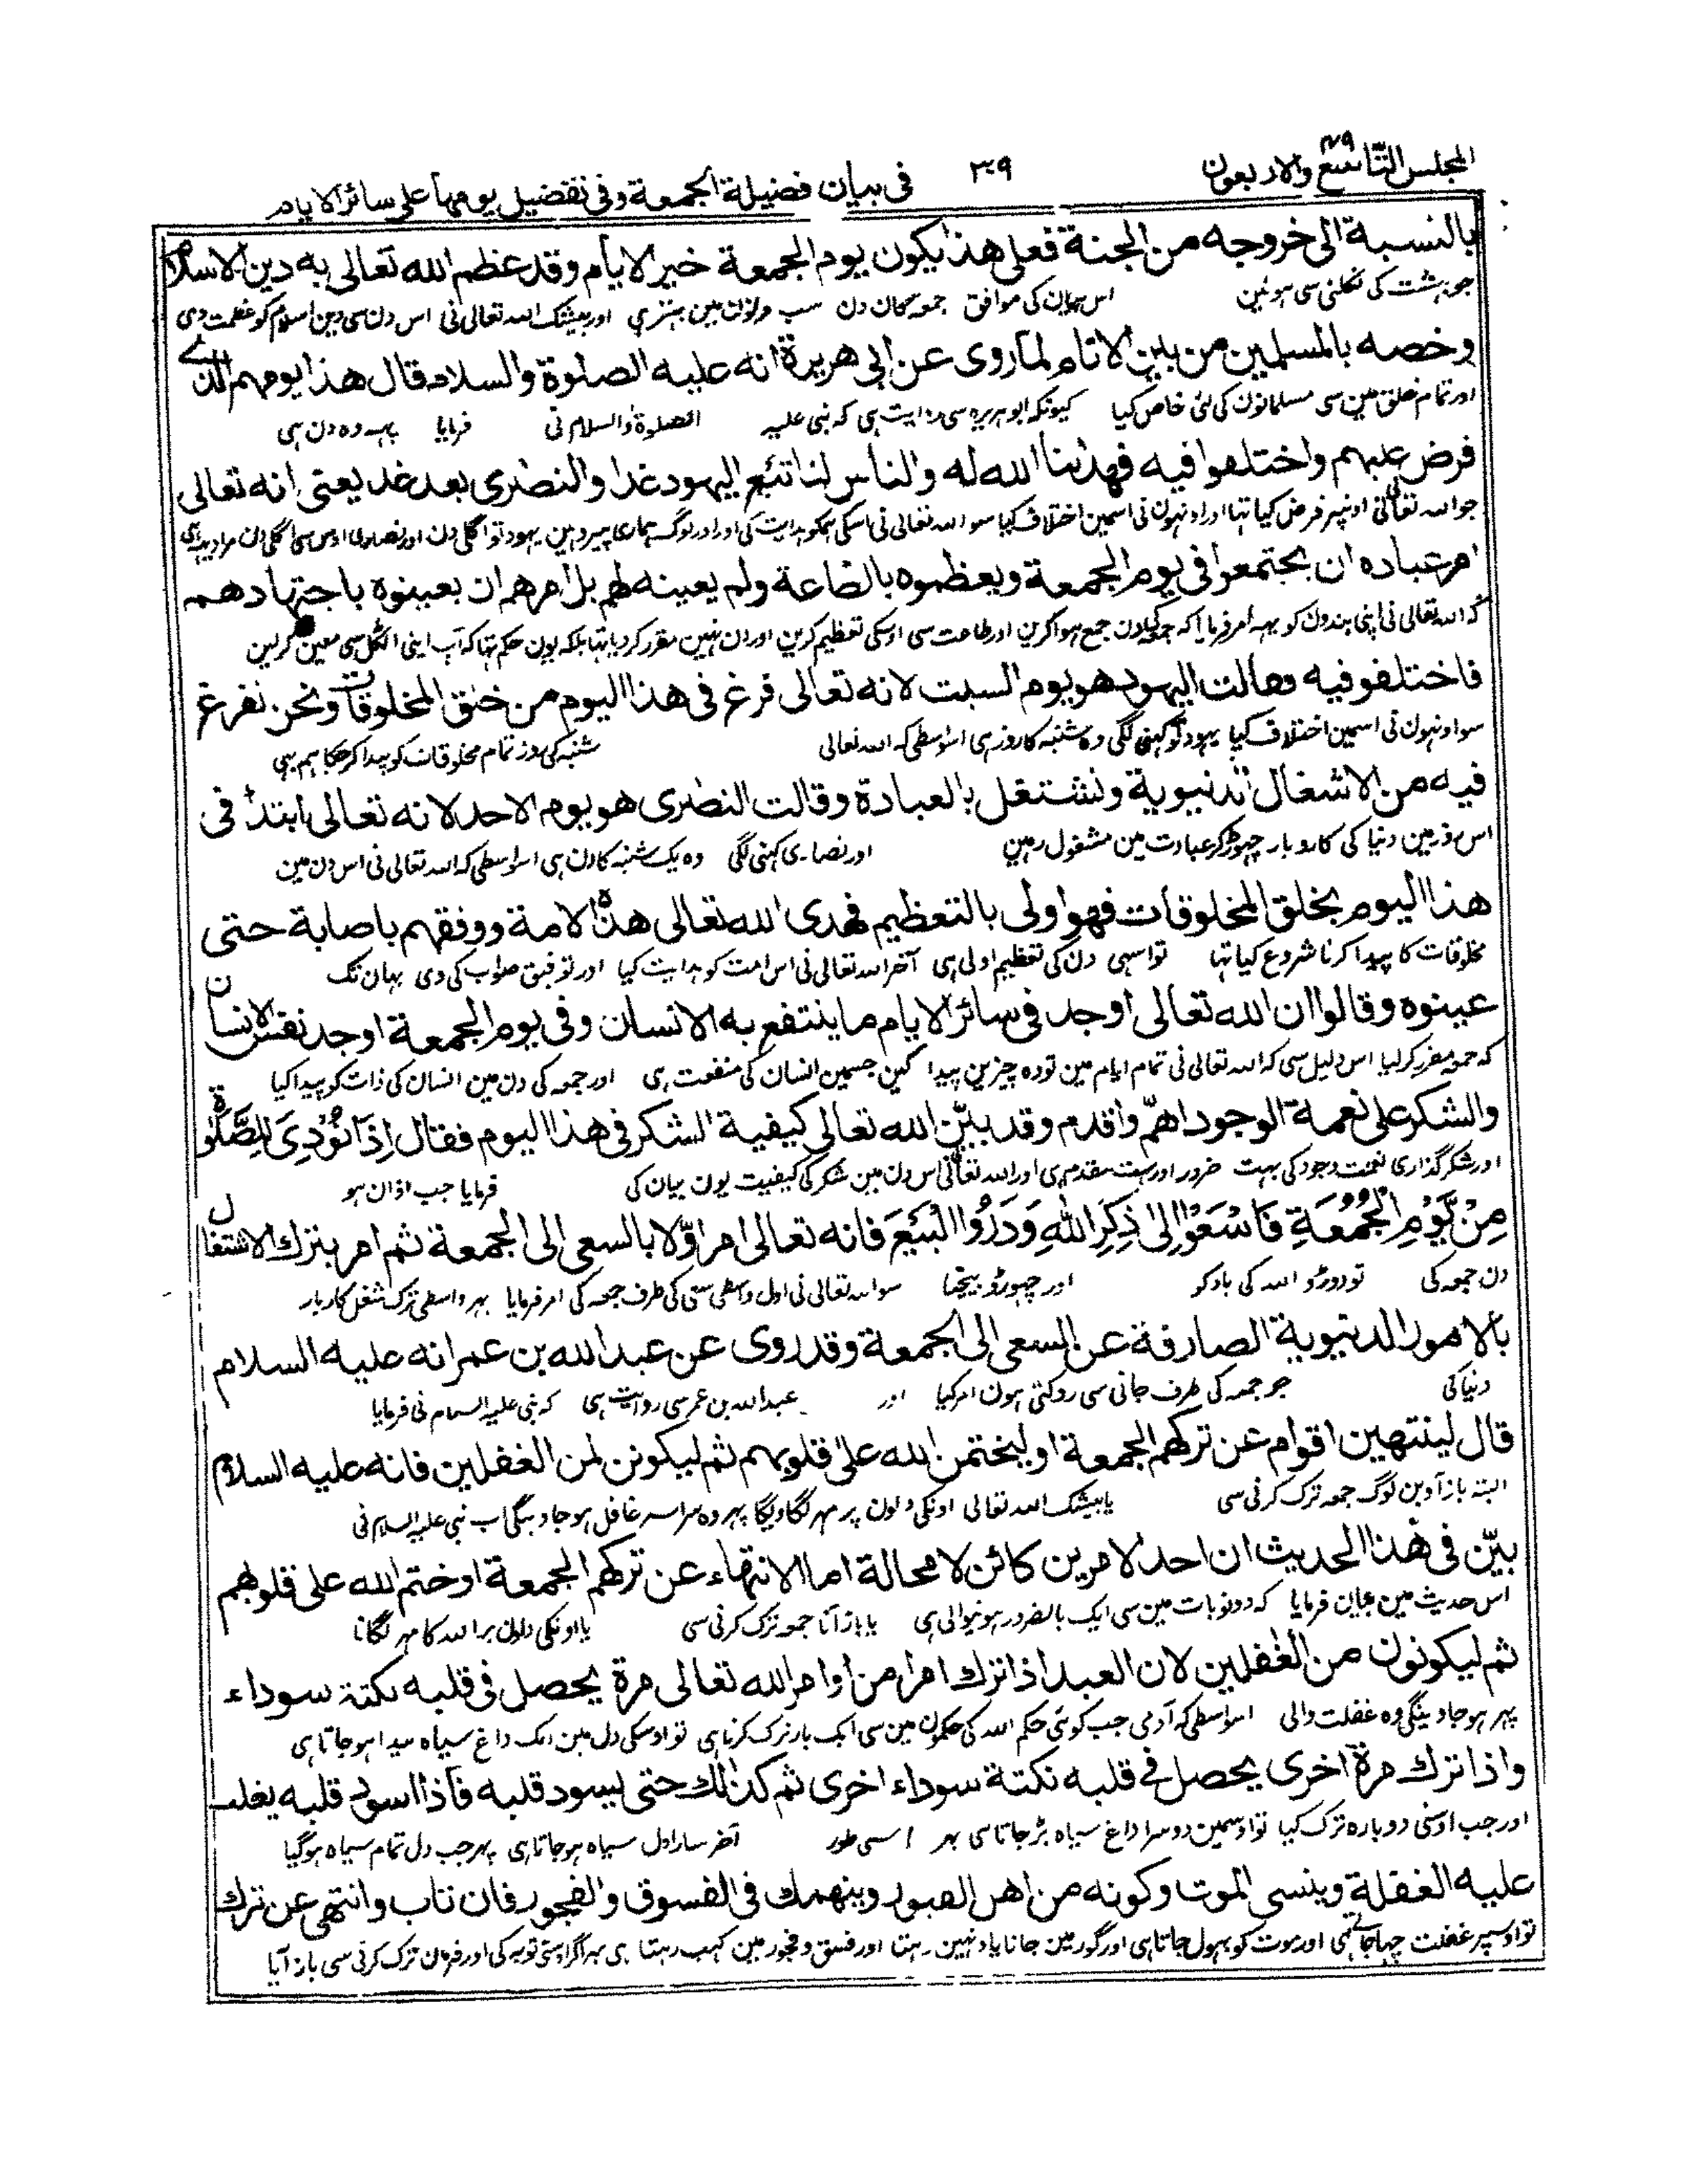 المجلس التاسع والاربعون ٣٠٩ فى بيان فضيلة الجمعة وفى تفضيل يومها على سائر الايام
بالنسبة الى خروجه من الجنة فعلى هذا يكون يوم الجمعة خير الايام وقد عظم الله تعالى به دين الاسلام
جو بہشت کی نکلنی سی ہوئین اس بیان کی موافق جمعہ کان دن سب دنونمین بہتر ہی اور بیشک اللہ تعالی نی اس دن سی دین اسلام کو عظمت دی
وخصه بالمسلمين من بين الانام لما روى عن ابى هريرة انه عليه الصلوة والسلام قال هذا يومهم الذے
اور تمام خلق مین سی مسلمانون کی لئی خاص کیا کیونکہ ابو ہریرہ سی روایت ہی کہ نبی علیہ الصلوۃ والسلام نی فرمایا یہہ وہ دن ہی
فرض عليهم واختلفوا فيه فهدانا الله له والناس لنا تبع اليهود غدا والنصرى بعد غد يعنى انه تعالى
جو اللہ تعالی نی اونپر فرض کیا تہا اور اونہون نی اسمین اختلاف کیا سو اللہ تعالی نی اسکی ہمکو ہدایت کی اور اور لوگ ہماری پیرو ہین یہود تو اگلی دن اور نصاری اوس سی اگلی دن مراد یہہ ہی
امر عباده ان يجتمعوا فى يوم الجمعة ويعظموه بالطاعة ولم يعينه لهم بل امرهم ان يعينوه باجتهادهم
کہ اللہ تعالی نی اپنی بندون کو یہہ امر فرمایا کہ جمعہ کیدن جمع ہوا کرین اور طاعت سی اوسکی تعظیم کرین اور دن نہین مقرر کر دیا تہا بلکہ یون حکم تہا کہ آپ اپنی اٹکل سی معین کر لین
فاختلفوفيه وقالت اليهود هو يوم السبت لانه تعالى فرغ فى هذا اليوم من خلق المخلوقات ونحن نفرغ
سو اونہون نی اسمین اختلاف کیا یہود تو کہنی لگی وہ شنبہ کا روز ہی اسواسطی کہ اللہ تعالی شنبہ کی روز تمام مخلوقات کو پیدا کر چکا ہم بہی
فيه من الاشغال الدنيوية ونشتغل بالعبادة وقالت النصرى هو يوم الاحد لانه تعالى ابتدأ فى
اس روز مین دنیا کی کاروبار چہوڑ کر عبادت مین مشغول رہین اور نصاری کہنی لگی وہ یک شنبہ کا دن ہی اسواسطی کہ اللہ تعالی نی اس دن مین
هذا اليوم بخلق المخلوقات فهو اولى بالتعظيم فهدى الله تعالى هذه الامة ووفقهم باصابة حتى
مخلوقات کا پیدا کرنا شروع کیا تہا تو اسہی دن کی تعظیم اولی ہی آخر اللہ تعالی نی اس امت کو ہدایت کیا اور توفیق صواب کی دی یہان تک
عينوه وقالوا ان الله تعالى اوجد فى سائر الايام ما ينتفع به الانسان وفى يوم الجمعة اوجد نفس الانسان
کہ جمعہ مقرر کر لیا اس دلیل سی کہ اللہ تعالی نی تمام ایام مین تو وہ چیزین پیدا کین جسمین انسان کی منفعت ہی اور جمعہ کی دن مین انسان کی ذات کو پیدا کیا
والشكر على نعمة الوجود اهم واقدم وقد بين الله تعالى كيفية الشكر فى هذا اليوم فقال اِذَا نُوْدِىَ لِلصَّلٰوة
اور شکر گذاری نعمت وجود کی بہت ضرور اور بہت مقدم ہی اور اللہ تعالی نی اس دن مین شکر کی کیفیت یون بیان کی فرمایا جب اذان ہو
مِنْ يَّوْمِ الْجُمُعَةِ فَاسْعَوْا اِلٰى ذِكْرِ اللهِ وَذَرُوا الْبَيْعَ فانه تعالى امر اوّلا بالسعى الى الجمعة ثم امر بترك الاشتغال
دن جمعہ کی تو دوڑو اللہ کی یاد کو اور چہوڑو بیچنا سو اللہ تعالی نی اول واسطی سعی کی طرف جمعہ کی امر فرمایا پہر واسطی ترک شغل کاربار
بالامور الدنيوية الصارفة عن السعى الى الجمعة وقد روى عن عبد الله بن عمر انه عليه السلام
دنیا کی جو جمعہ کی طرف جانی سی روکتی ہون امر کیا اور عبد اللہ بن عمر سی روایت ہی کہ نبی علیہ السلام نی فرمایا
قال لينتهين اقوام عن تركهم الجمعة او ليختمن الله على قلوبهم ثم ليكونن لمن الغفلين فانه عليه السلام
البتہ باز آوین لوگ جمعہ ترک کرنی سی یا بیشک اللہ تعالی اونکی دلون پر مہر لگا ویگا پہر وہ سراسر غافل ہو جاوینگی اب نبی علیہ السلام نی
بيّن فى هذا الحديث ان احد الامرين كائن لا محالة اما الانتهاء عن تركهم الجمعة او ختم الله على قلوبهم
اس حدیث مین بیان فرمایا کہ دونو بات مین سی ایک بالضرور ہونیوالی ہی یا باز آنا جمعہ ترک کرنی سی یا اونکی دلون پر اللہ کا مہر لگانا
ثم ليكونون من الغفلين لان العبد اذا ترك امرا من اوامر الله تعالى مرة يحصل فى قلبه نكتة سوداء
پہر ہو جاوینگی وہ غفلت والی اسواسطی کہ آدمی جب کوئی حکم اللہ کی حکمون مین سی ایک بار ترک کرتا ہی تو اوسکی دل مین ایک داغ سیاہ پیدا ہو جاتا ہی
واذا ترك مرة اخرى يحصل فى قلبه نكتة سوداء اخرى ثم كذلك حتى يسود قلبه فاذا اسود قلبه يغلب
اور جب اوسنی دوبارہ ترک کیا تو اوسمین دوسرا داغ سیاہ پڑ جاتا ہی پہر اسی طور آخر سارا دل سیاہ ہو جاتا ہی پہر جب دل تمام سیاہ ہو گیا
عليه الغفلة وينسى الموت وكونه من اهل القبور وينهمك فى الفسوق والفجور فان تاب وانتهى عن ترك
تو اوسپر غفلت چہا جاتی ہی اور موت کو بہول جاتا ہی اور گور مین جانا یاد نہین رہتا اور فسق و فجور مین کہب رہتا ہی پہر اگر اوسنی توبہ کی اور فرمان ترک کرنی سی باز آیا